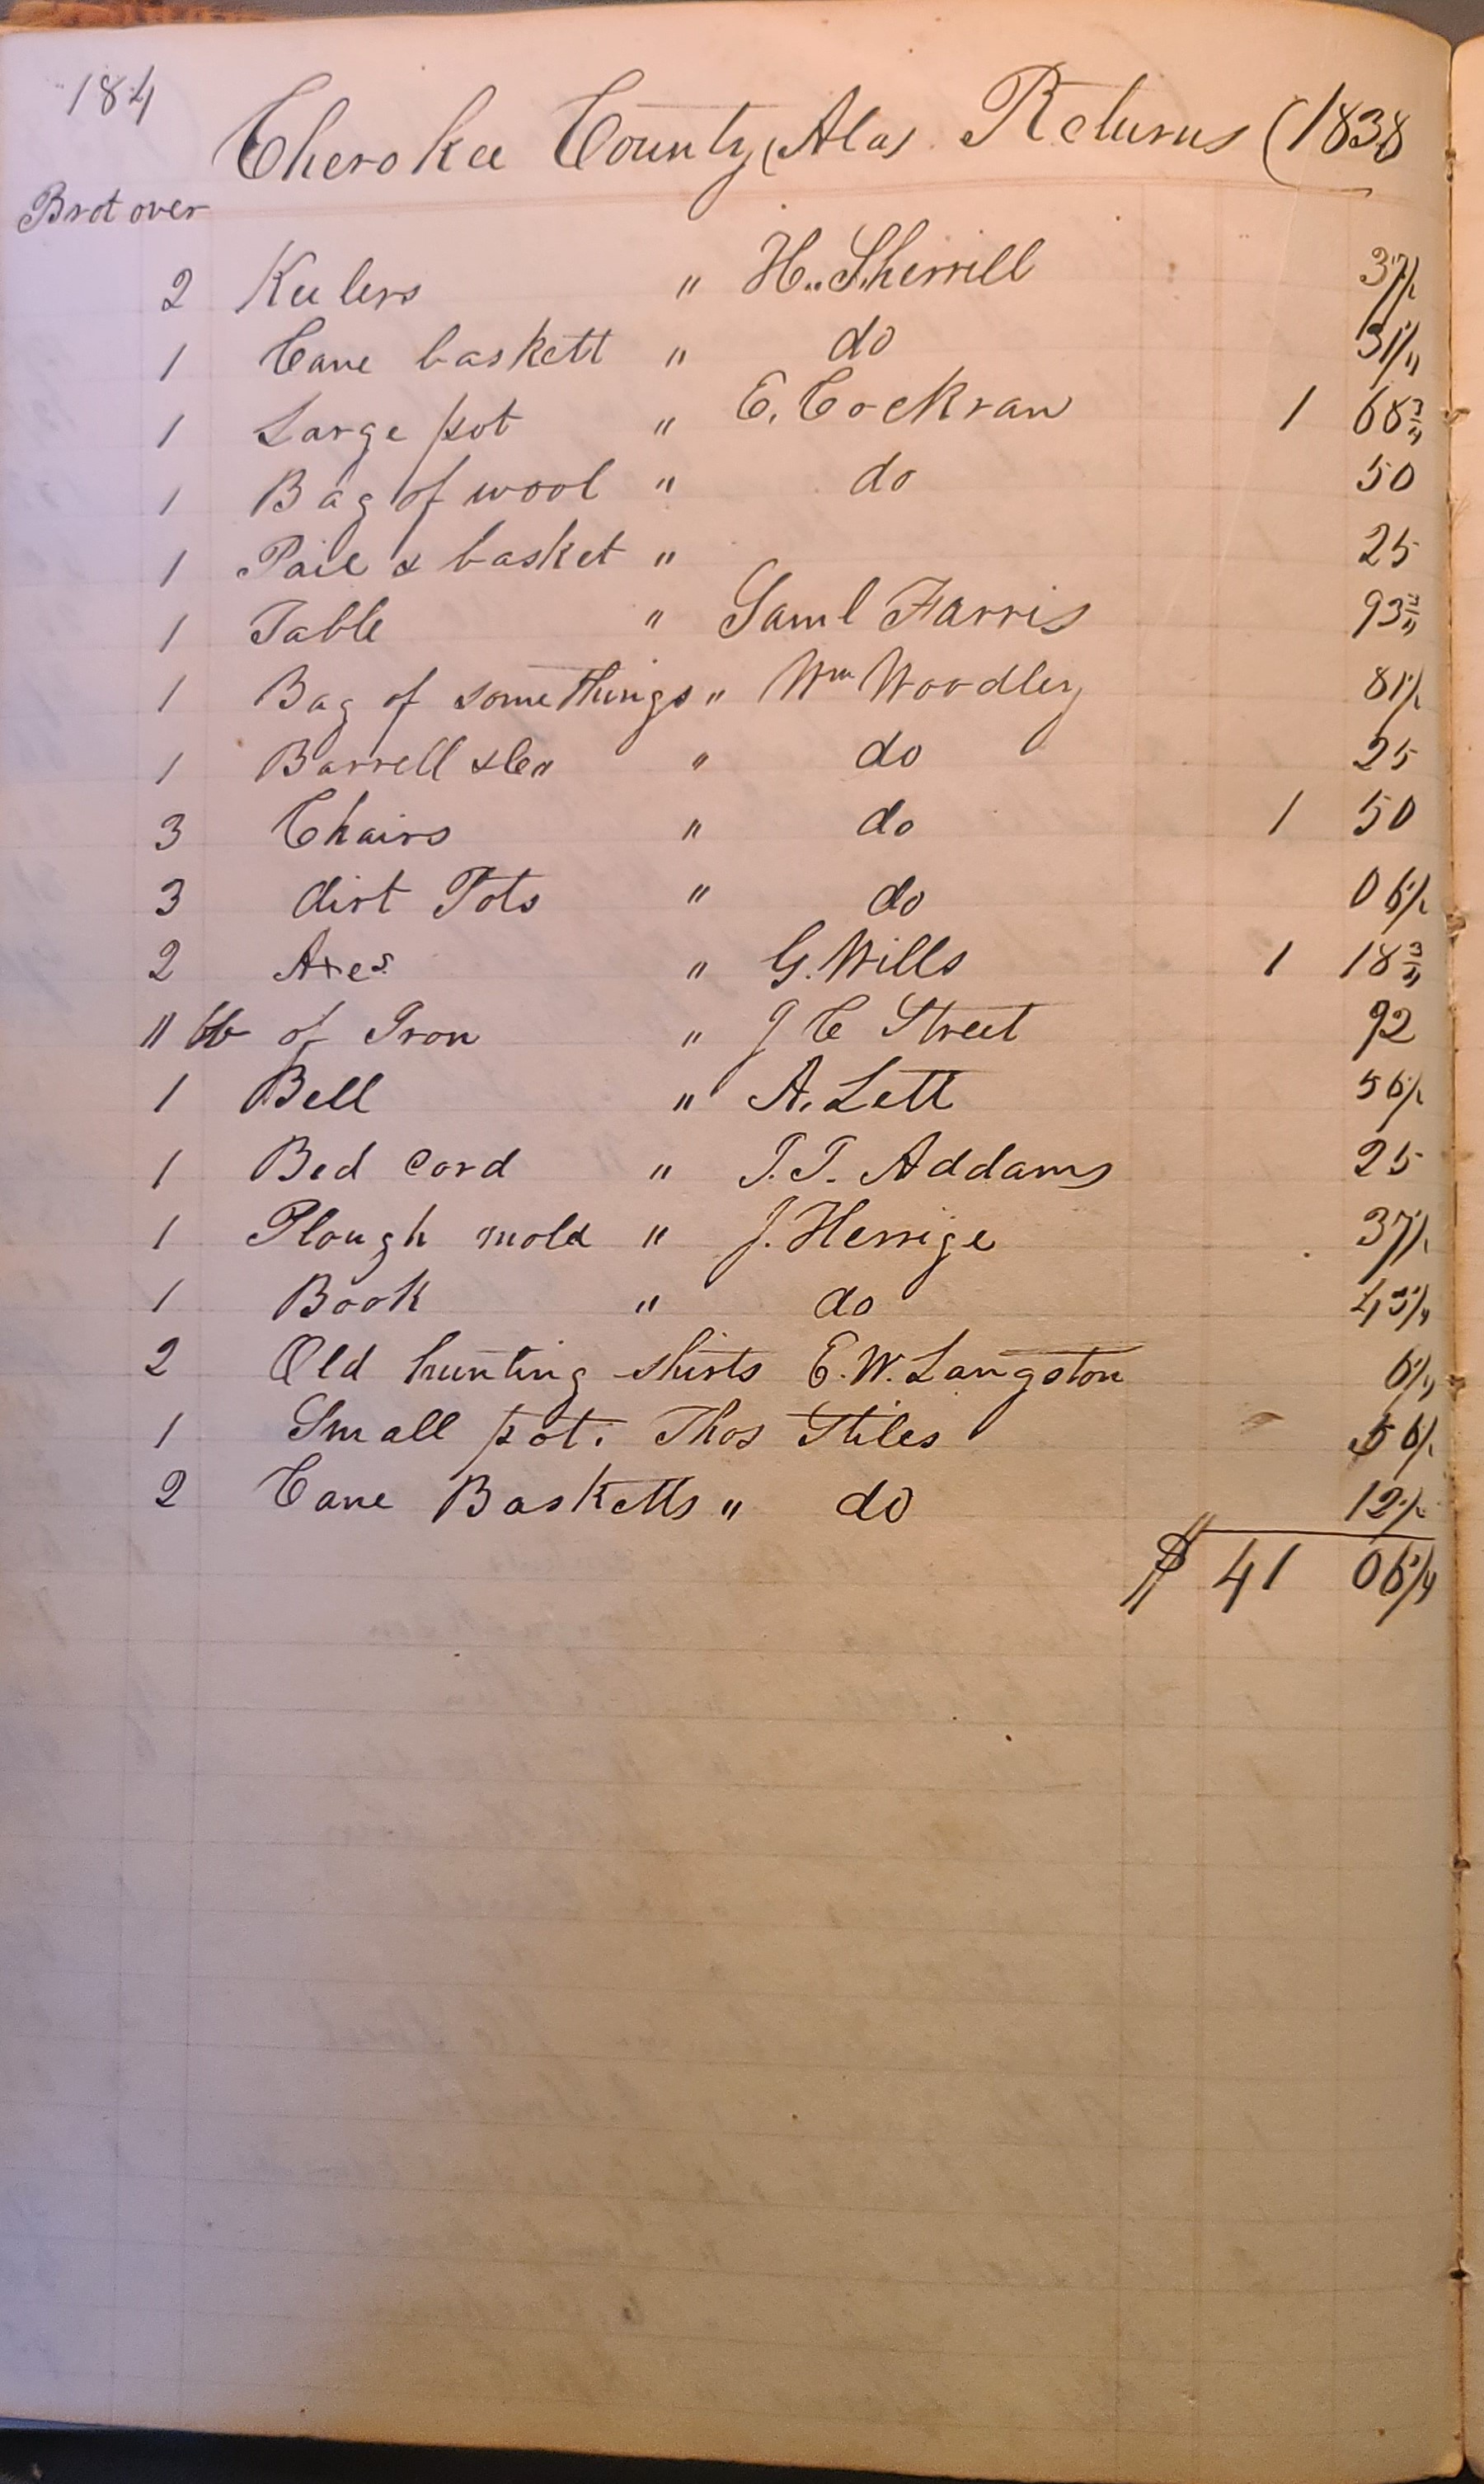 184
Cherokee County, Ala, Returns (1838
Brot over
2 Keelers " H. Sherrill 37½
1 Cane baskett " do 31¼
1 Large pot " E. Cockran 1 68¾
1 Bag of wool " do 50
1 Pail & basket " 25
1 Table " Saml Farris 93¾
1 Bag of some things " Wm Woodley 81½
1 Barrell &c " do 25
3 Chairs " do 1 50
3 dirt Pots " do 06½
2 Axes " G. Wills 1 18¾
11 lb of Iron " J C Street 92
1 Bell " A. Lett 56½
1 Bed Cord " T. T. Addams 25
1 Plough mold " J. Herrige 37½
1 Book " do 43¼
2 Old hunting shirts E. W. Langston 6¼
1 Small pot. Thos Stiles 56½
2 Cane Basketts " do 12½
$ 41 06¼